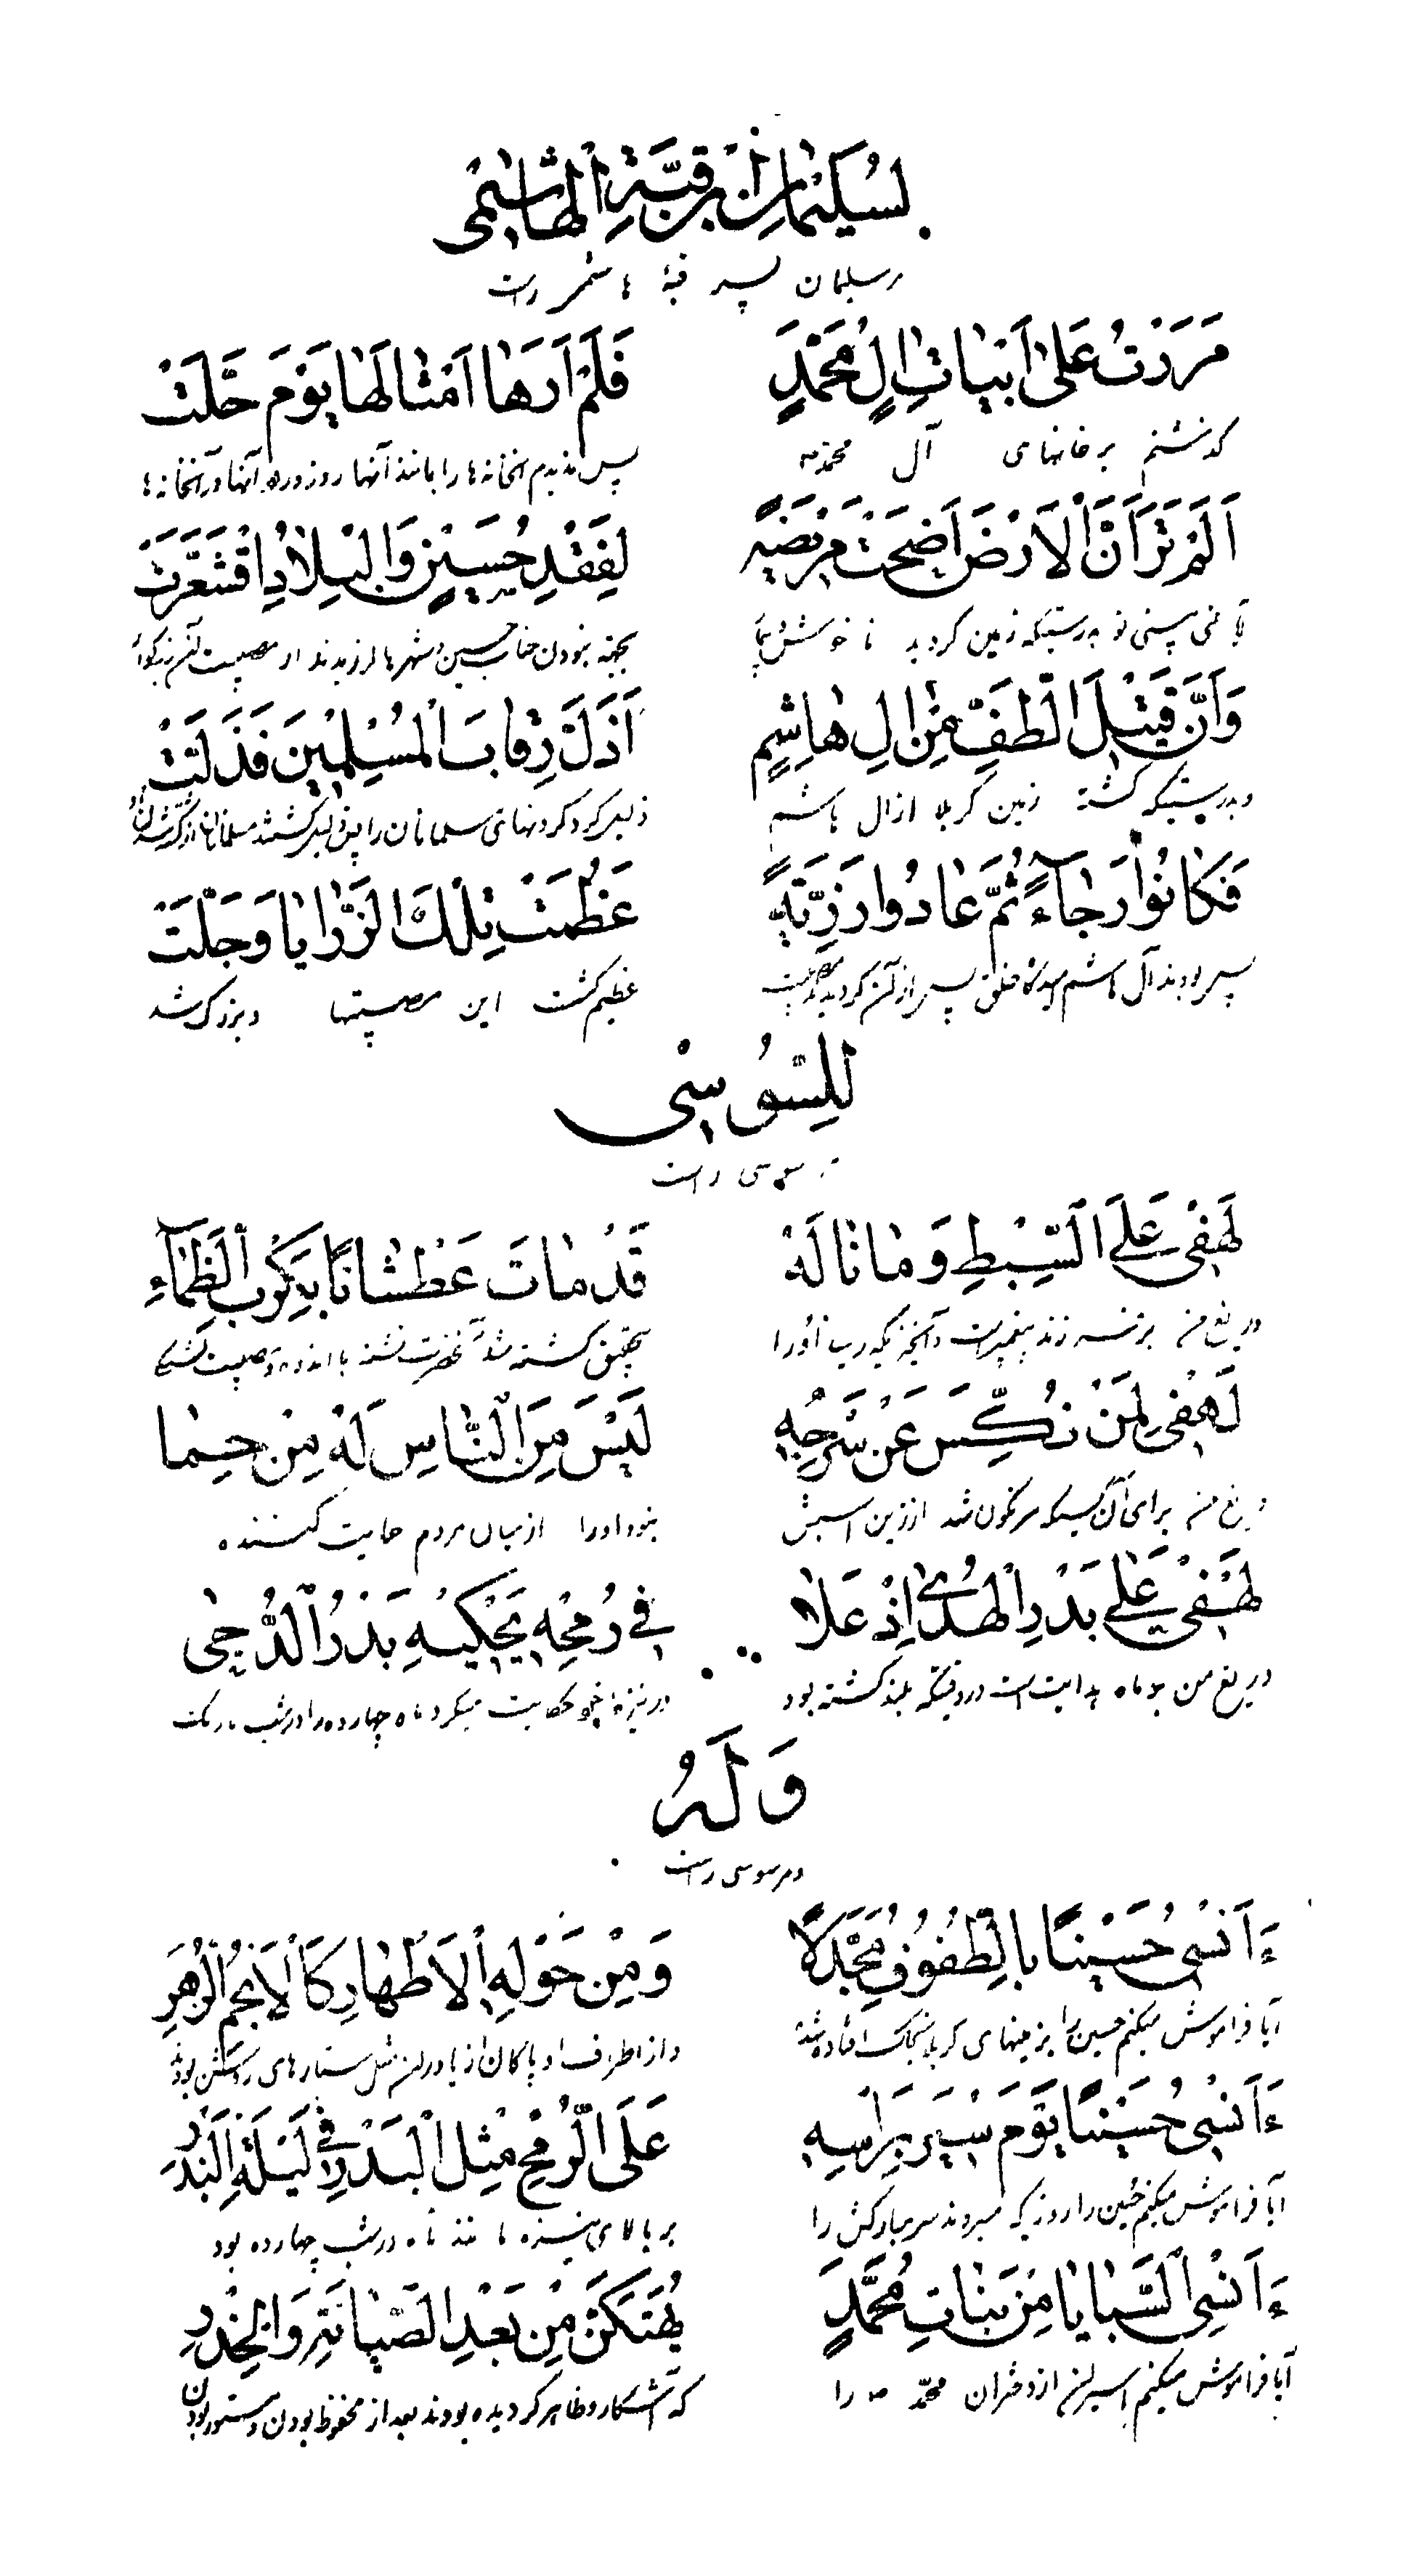 لِسُلَيْمَانَ ابْنِ قَبَّةِ الْهَاشِمِی
مر سلیمان پسر قبهٔ هاشمی راست
مَرَرْتُ عَلٰى اَبْيَاتِ اٰلِ مُحَمَّدٍ فَلَمْ اَرَهٰا اَمْثٰالَهٰا يَوْمَ حَلَّتْ
گذشتم بر خانهای آل محمد ص پس ندیدم آنخانه ها را مانند آنها روز ورود آنها در آنخانه ها
اَلَمْ تَرَ اَنَّ الْاَرْضَ اَضْحَتْ مَرِيضَةً لِفَقْدِ حُسَيْنٍ وَالْبِلٰادُ اقْشَعَرَّتْ
آیا نمی بینی تو بدرستیکه زمین گردید نا خوش بجهة نبودن جناب حسین و شهرها لرزیدند از مصیبت آن بزرگوار
وَاَنَّ قَتِيلَ الطَّفِّ مِنْ اٰلِ هٰاشِمٍ اَذَلَّ رِقٰابَ الْمُسْلِمِينَ فَذَلَّتْ
و بدرستیکه کشته زمین کربلا از ال هاشم ذلیل کرد گردنهای مسلمانان را پس ذلیل گشتند مسلمانان
فَكٰانُوا رَجٰاۤءً ثُمَّ عٰادُوا رَزِيَّةً عَظُمَتْ تِلْكَ الرَّزٰايٰا وَجَلَّتْ
پس بودند آل هاشم امیدگاه خلق پس از آن گردیدند مصیبت عظیم گشت این مصیبتها و بزرگ شد
لِلسُّوسِی
مر سوسی راست
لَهْفِی عَلَى السِّبْطِ وَمٰا نٰالَهُ قَدْ مٰاتَ عَطْشٰانًا بِكَرْبِ الظَّمٰاۤءِ
دریغ من بر فرزند پیغمبر است و آنچیزیکه رسید او را بتحقیق کشته شد آنحضرت تشنه با اندوه و مصیبت تشنگی
لَهْفِی لِمَنْ نُكِّسَ عَنْ سَرْجِهِ لَيْسَ مِنَ النّٰاسِ لَهُ مِنْ حِمٰا
دریغ من برای آن کسیکه سرنگون شد از زین اسبش نبود او را از میان مردم حمایت کننده
لَهْفِی عَلٰى بَدْرِ الْهُدٰى اِذْ عَلٰا فِی رُمْحِهِ يَحْكِيهِ بَدْرُ الدُّجٰى
دریغ من بر ماه هدایت است در وقتیکه بلند گشته بود در نیزه خود حکایت میکرد ماه چهارده را در شب تاریک
وَلَهُ
و مر سوسی راست
ءَاَنْسٰى حُسَيْنًا بِالطُّفُوفِ مُجَدَّلًا وَمِنْ حَوْلِهِ الْاَطْهٰارُ كَالْاَنْجُمِ الزُّهْرِ
آیا فراموش میکنم حسین را بزمینهای کربلا بخاک افتاده شد و از اطراف او پاکان از یاوران مثل ستارهای روشن بودند
ءَاَنْسٰى حُسَيْنًا يَوْمَ سِيرَ بِرَأْسِهِ عَلَى الرُّمْحِ مِثْلَ الْبَدْرِ فِی لَيْلَةِ الْبَدْرِ
آیا فراموش میکنم حسین را روزیکه میبردند سر مبارکش را بر بالای نیزه مانند ماه در شب چهارده بود
ءَاَنْسَى السَّبٰايٰا مِنْ بَنٰاتِ مُحَمَّدٍ يُهَتَّكْنَ مِنْ بَعْدِ الصِّيٰانَةِ وَالْخِدْرِ
آیا فراموش میکنم اسیران از دختران محمّد ص را که آشکار و ظاهر گردیده بودند بعد از محفوظ بودن و مستور بودن